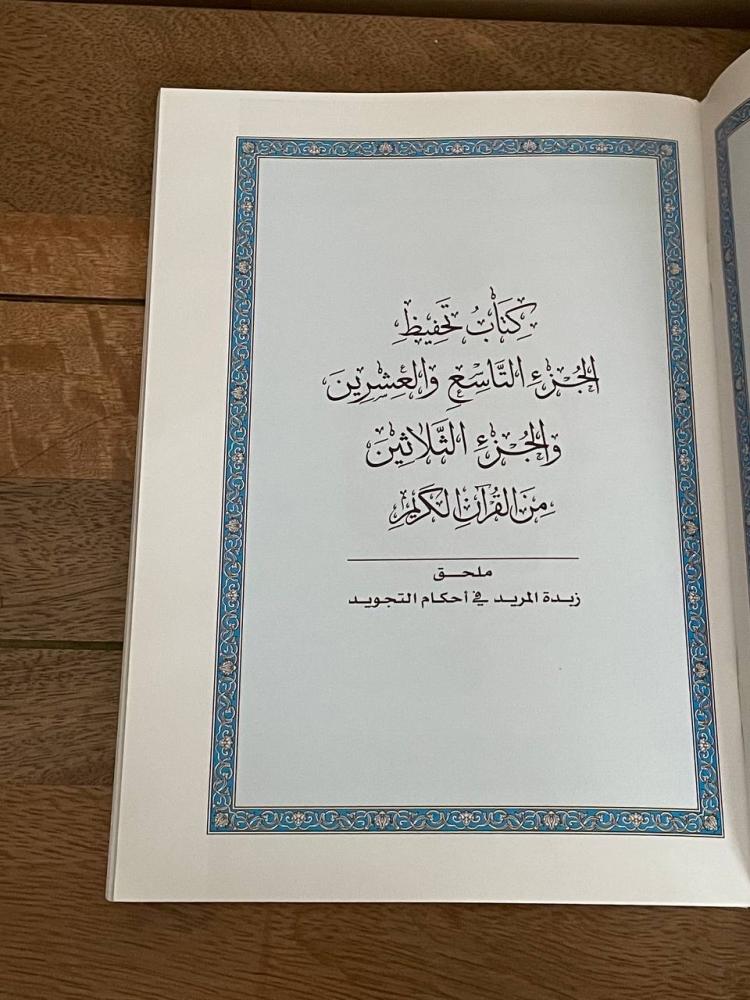 كِتَابُ تَحْفِيظِ
الجُزْءِ التَّاسِعِ وَالعِشْرِينَ
وَالجُزْءِ الثَّلَاثِينَ
مِنَ القُرْآنِ الكَرِيمِ
ملحق
زبدة المريد في أحكام التجويد